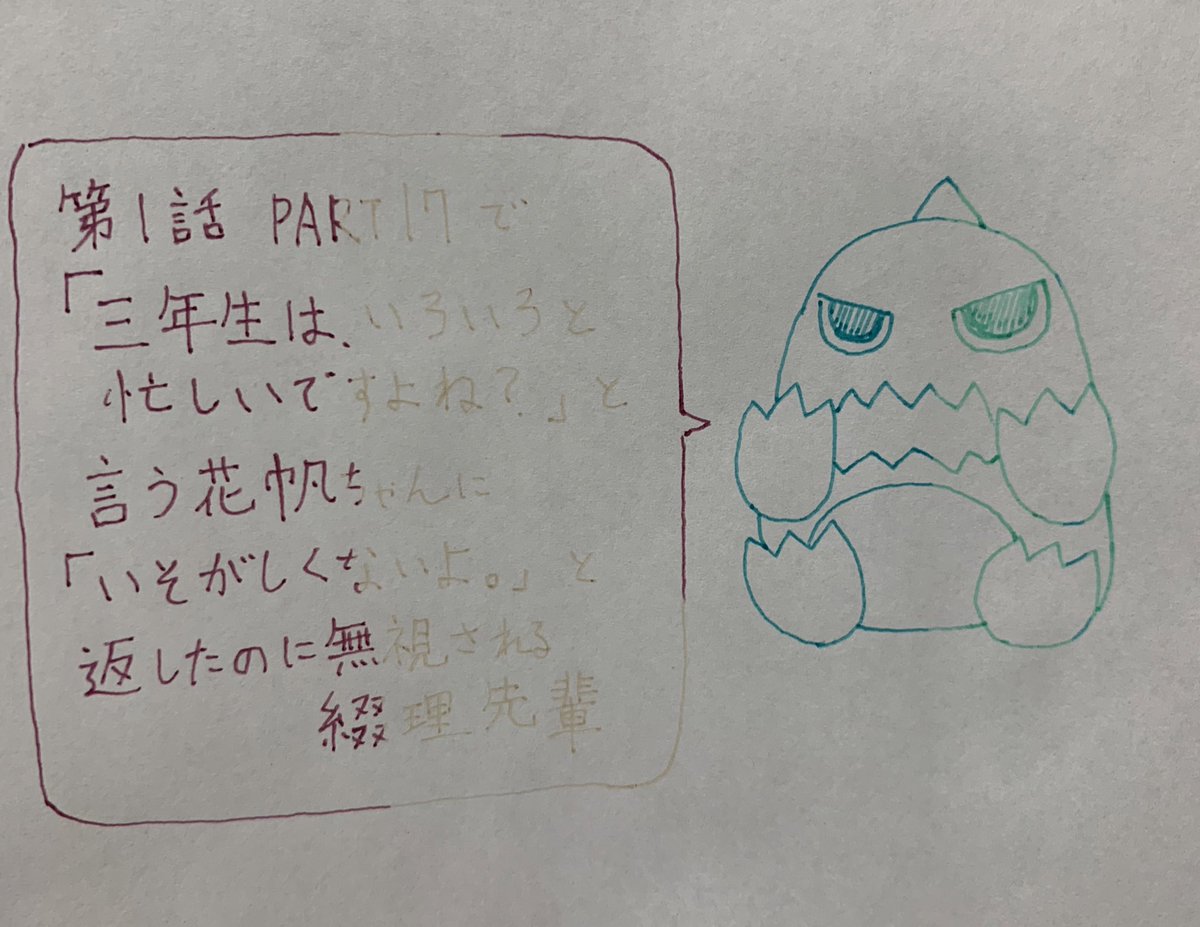 第1話 PART17で
「三年生は、いろいろと
忙しいですよね？」と
言う花帆ちゃんに
「いそがしくないよ。」と
返したのに無視される
綴理先輩